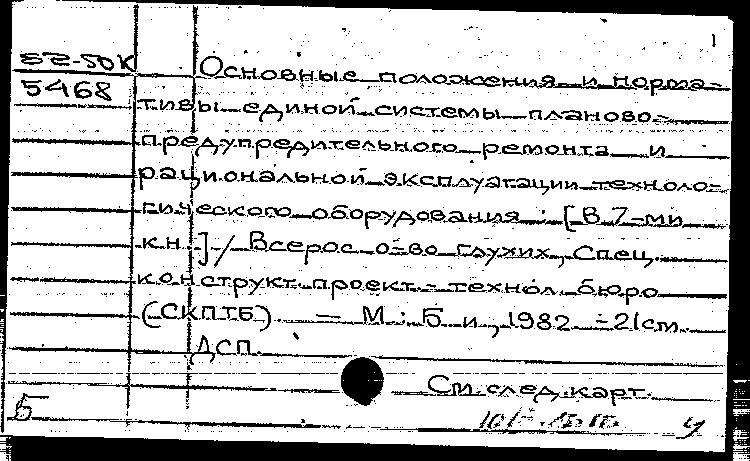 1
57-50К
5468
Основные положения и норма-
тивы единой системы планово-
предупредительного ремонта и
рациональной эксплуатации техноло-
гического оборудования : [В 7-ми
кн.] / Всерос. о-во глухих, Спец.
конструкт. проект.-технол. бюро
(СКПТБ). — М.: Б и, 1982. - 21 см.
ДСП.
См. след. карт.
Б